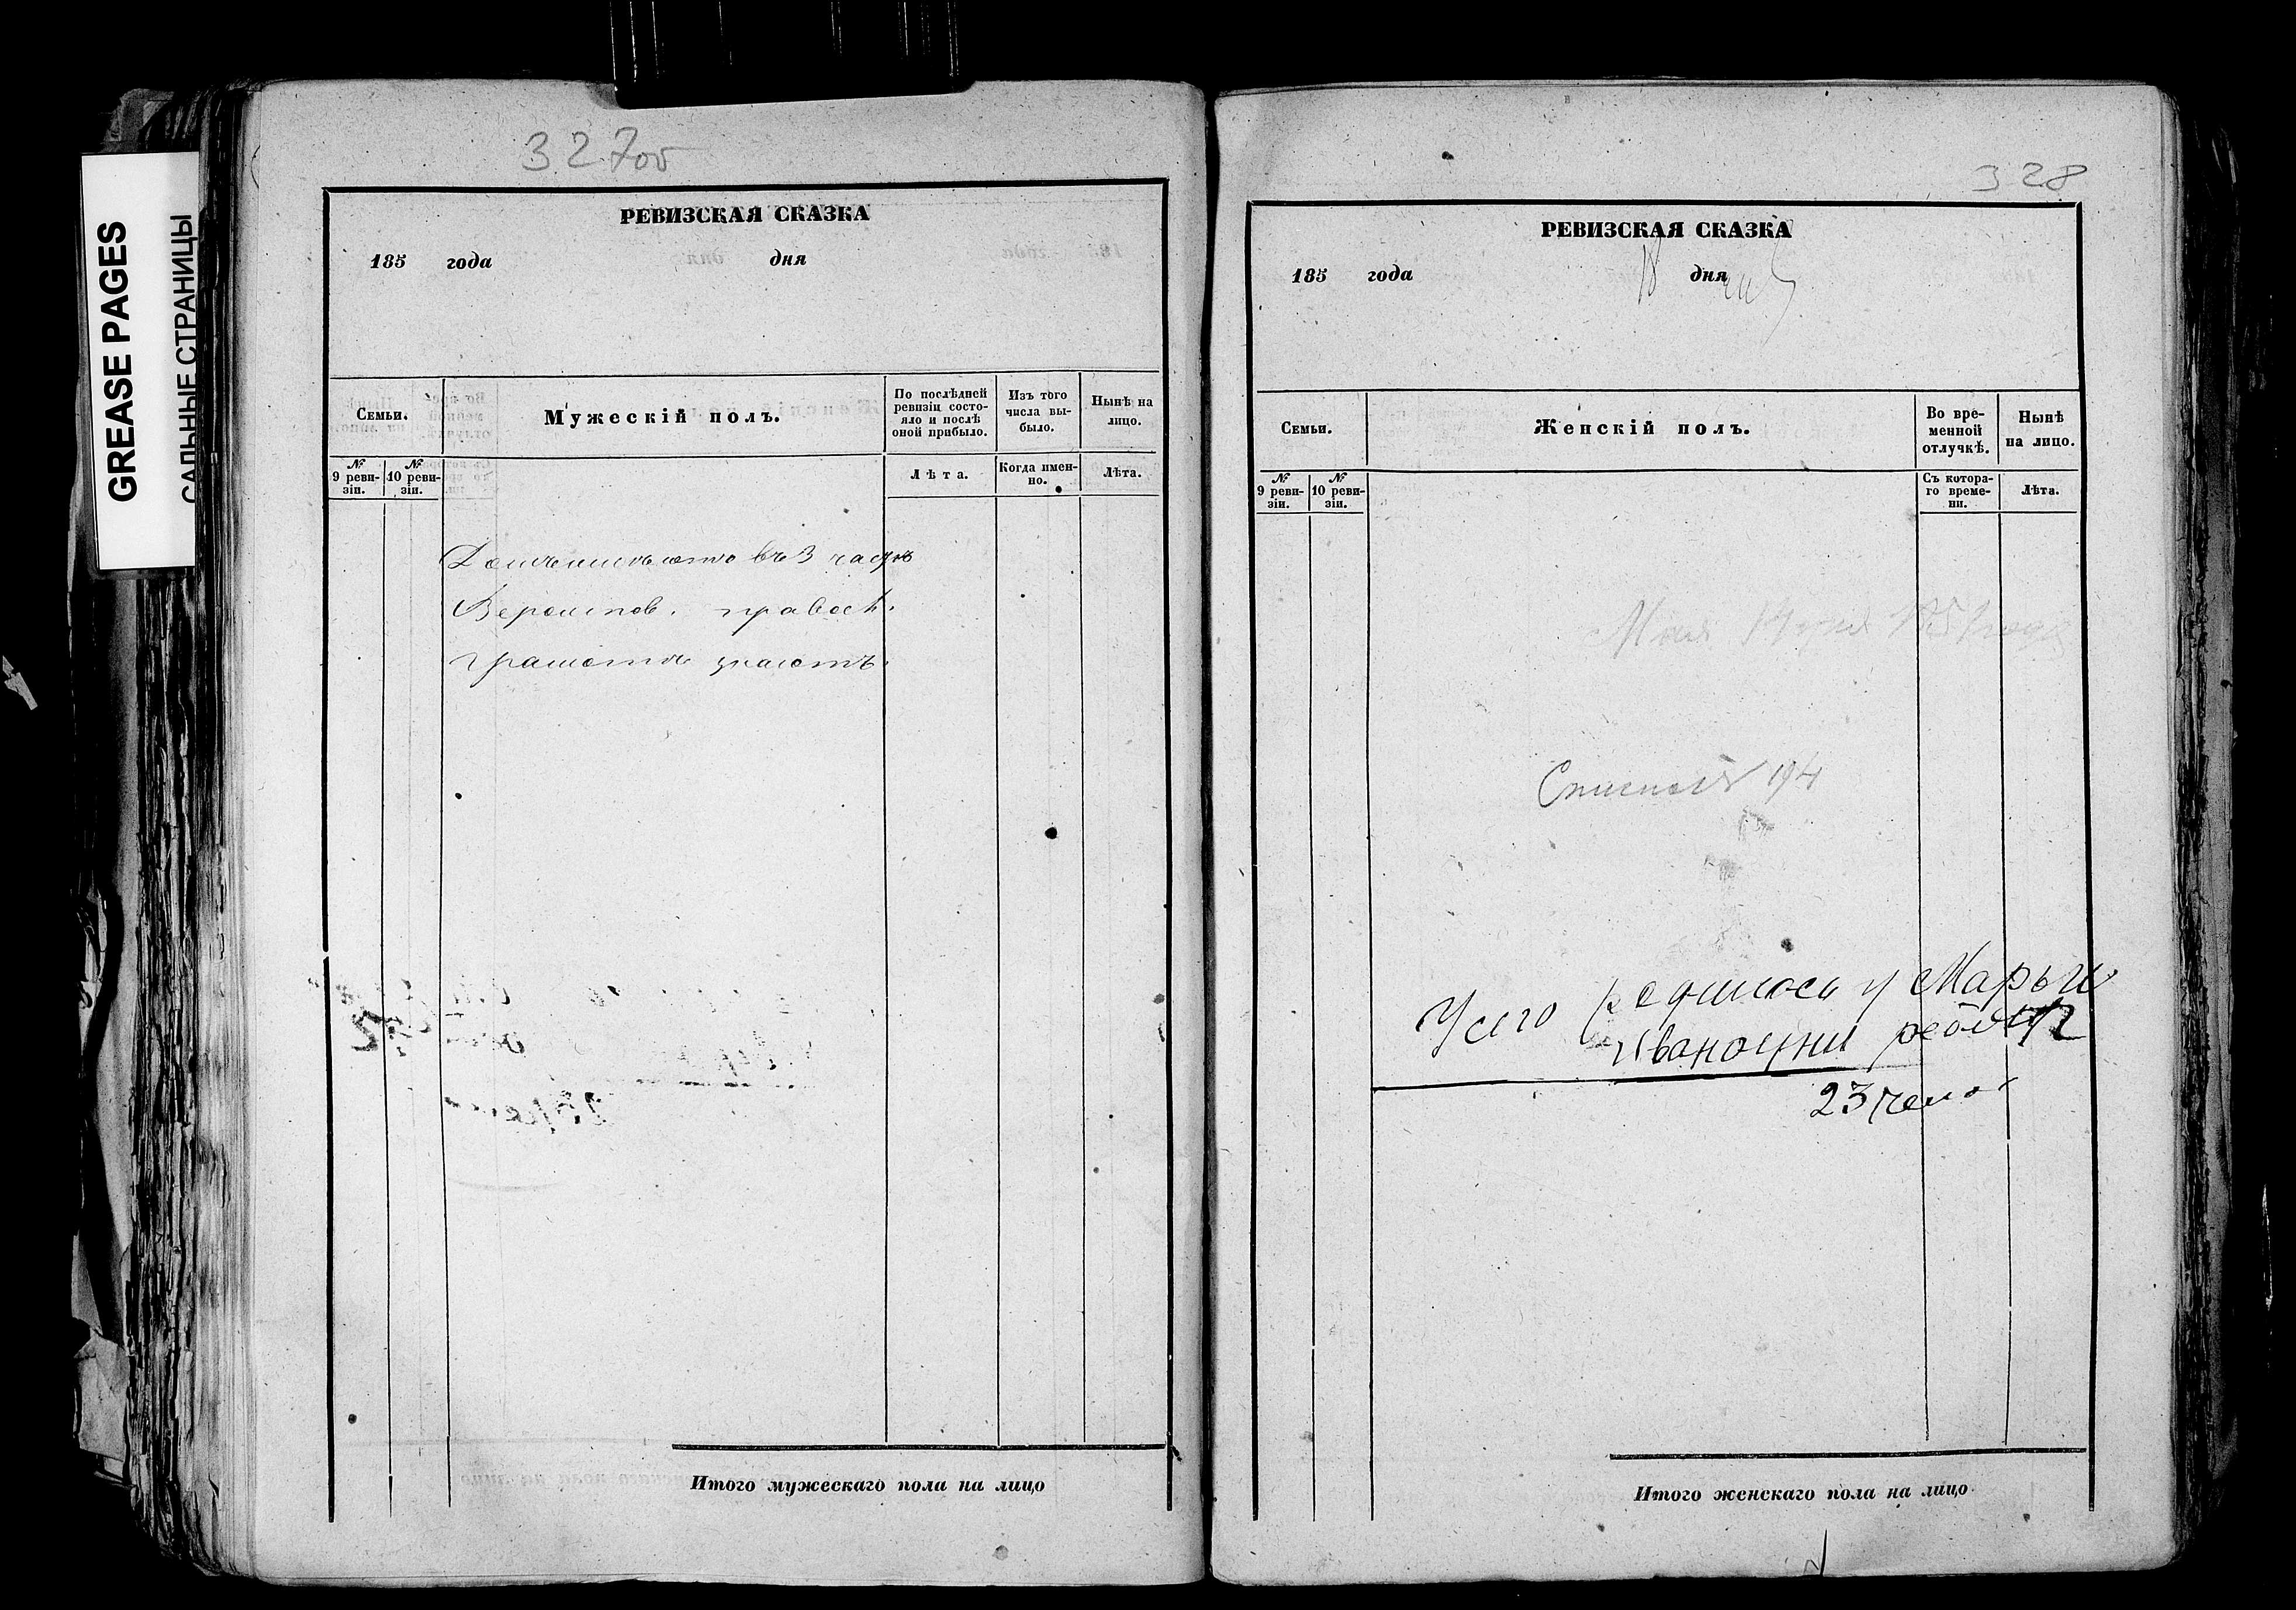 GREASE PAGES
САЛЬНЫЕ СТРАНИЦЫ
327об
РЕВИЗСКАЯ СКАЗКА
185 года дня
Семьи.
Мужескій полъ.
По послѣдней ревизіи состояло и послѣ оной прибыло.
Изъ того числа выбыло.
Нынѣ на лицо.
№ 9 ревизіи.
№ 10 ревизіи.
Лѣта.
Когда именно.
Лѣта.
въ 3
Вероисповѣ. правосл.
грамоте знаютъ.
Итого мужескаго пола на лицо
328
РЕВИЗСКАЯ СКАЗКА
185 года 18 дня
Семьи.
Женскій полъ.
Во временной отлучкѣ.
Нынѣ на лицо.
№ 9 ревизіи.
№ 10 ревизіи.
Съ котораго времени.
Лѣта.
194
Усего родилось у Марьи
Ивановни
23 чело
Итого женскаго пола на лицо